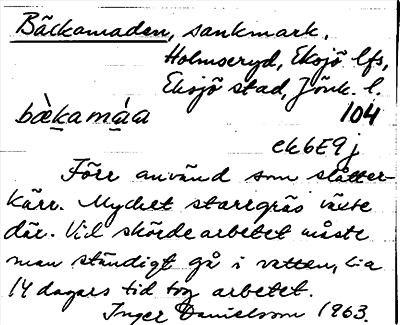 Bäckamaden, sankmark,
Holmseryd, Eksjö lfs,
Eksjö stad, Jönk. l.
bæ̀kamáa 104
ek6E9j
Förr använd som slåtter-
kärr. Mycket starrgräs växte
där. Vid skördearbetet måste
man ständigt gå i vatten, c:a
14 dagars tid tog arbetet.
Inger Danielsson 1963.